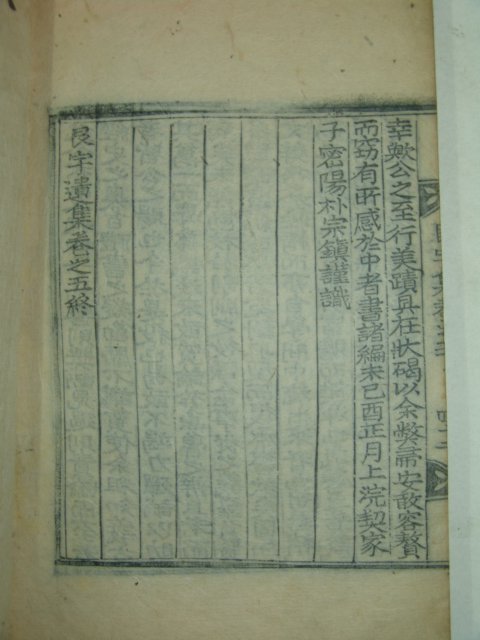 幸歟公之至行美蹟具在狀碣以余弊帚安敢容贅
而窃有所感於中者書諸編末己酉正月上浣契家
子密陽朴宗鎭謹識
艮宇遺集卷之五終